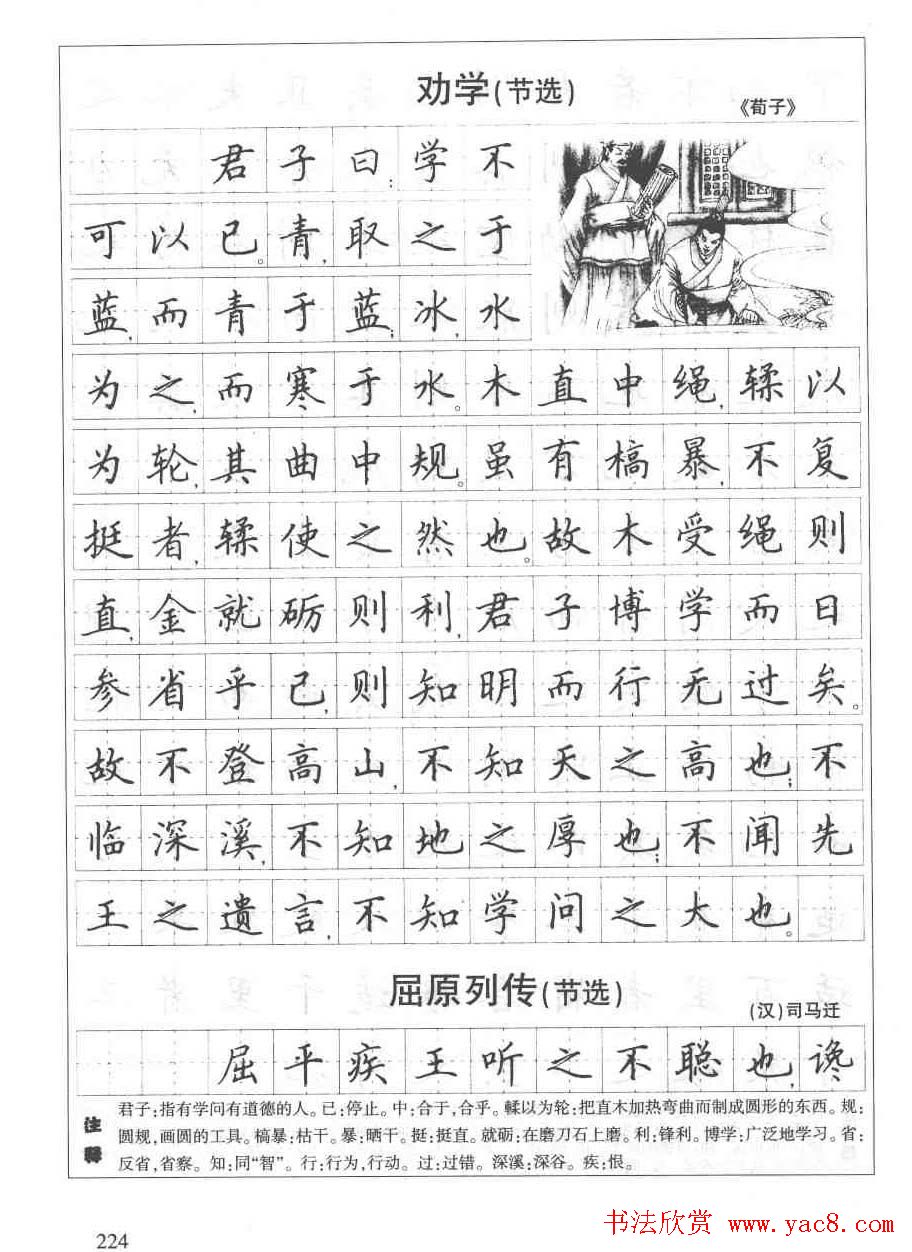 劝学(节选)
《荀子》
君子曰:学不
可以已。青,取之于
蓝,而青于蓝;冰,水
为之,而寒于水。木直中绳,輮以
为轮,其曲中规。虽有槁暴,不复
挺者,輮使之然也。故木受绳则
直,金就砺则利,君子博学而日
参省乎己,则知明而行无过矣。
故不登高山,不知天之高也;不
临深溪,不知地之厚也;不闻先
王之遗言,不知学问之大也。
屈原列传(节选)
(汉)司马迁
屈平疾王听之不聪也,谗
注释
君子:指有学问有道德的人。已:停止。中:合于,合乎。輮以为轮:把直木加热弯曲而制成圆形的东西。规:
圆规,画圆的工具。槁暴:枯干。暴:晒干。挺:挺直。就砺:在磨刀石上磨。利:锋利。博学:广泛地学习。省:
反省,省察。知:同“智”。行:行为,行动。过:过错。深溪:深谷。疾:恨。
224
书法欣赏 www.yac8.com